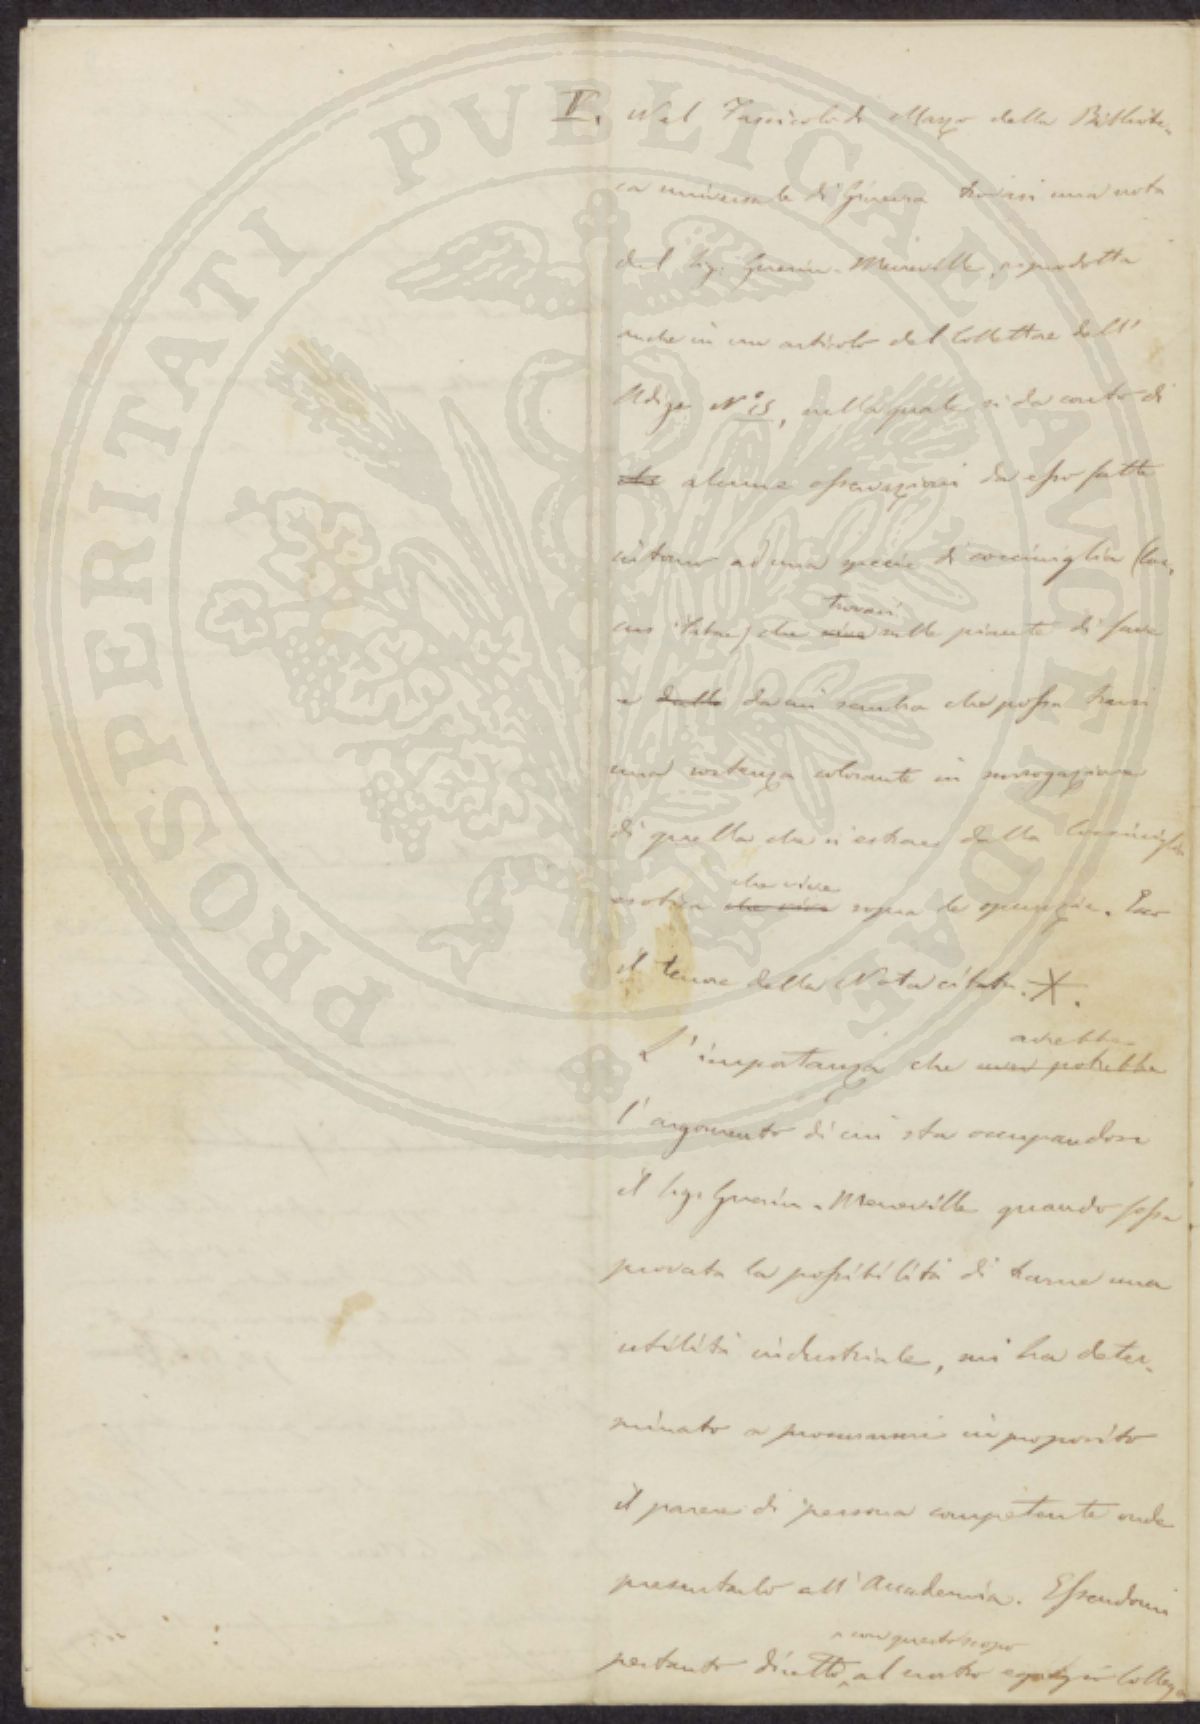 PROSPERITATI PVBLICAE AVGENDAE
V. Nel Fascicolo di Marzo della Bibliote-
ca universale di Ginevra trovasi una nota
del Sig. Guerin-Meneville, riprodotta
anche in un articolo del Collettore dell'
Adige N.º 15, nella quale si da conto di
alcune osservazioni da esso fatte
intorno ad una specie di cocciniglia (Coc-
cus fabae) che trovasi sulle piante di fave
e dalla da cui sembra che possa trarsi
una sostanza colorante in surrogazione
di quella che si estrae dalla Cocciniglia
esotica che vive sopra le opunzie. Ecco
il tenore della Nota citata. X.
L'importanza che avrebbe potrebbe
l'argomento di cui sta occupandosi
il Sig. Guerin-Meneville quando fosse
provata la possibilità di trarne una
utilità industriale, mi ha deter-
minato a procurarmi in proposito
il parere di persona competente onde
presentarlo all'Accademia. Essendomi
pertanto diretto a con questo scopo al nostro egregio Collega